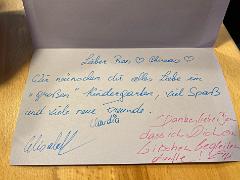 Lieber ♡ ♡
Wir wünschen dir alles Liebe im
"großen" Kindergarten, viel Spaß
und viele neue Freunde.
Claudia
"Danke lieber
dass ich Dich ein
bisschen begleiten
durfte!